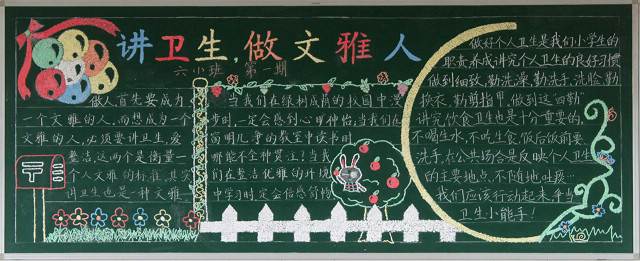 讲卫生,做文雅人
六小班 第一期
做人首先要成为
一个文雅的人,而想成为一个
文雅的人,必须要讲卫生,爱
整洁,这两个是衡量一
个人文雅的标准,其实
讲卫生也是一种文雅
当我们在绿树成荫的校园中漫
步时,一定会感到心旷神怡,当我们在
窗明几净的教室中读书时
哪能不全神贯注?当我
们在整洁优雅的环境
中学习时定会倍感舒畅
做好个人卫生是我们小学生的
职责,养成讲究个人卫生的良好习惯
做到细致,勤洗澡,勤洗手,洗脸,勤
换衣,勤剪指甲,做到这"四勤"
讲究饮食卫生也是十分重要的,
不喝生水,不吃生食,饭后饭前要
洗手,在公共场合是反映个人卫生
的主要地点,不随地吐痰…
我们应该行动起来,争当
卫生小能手!